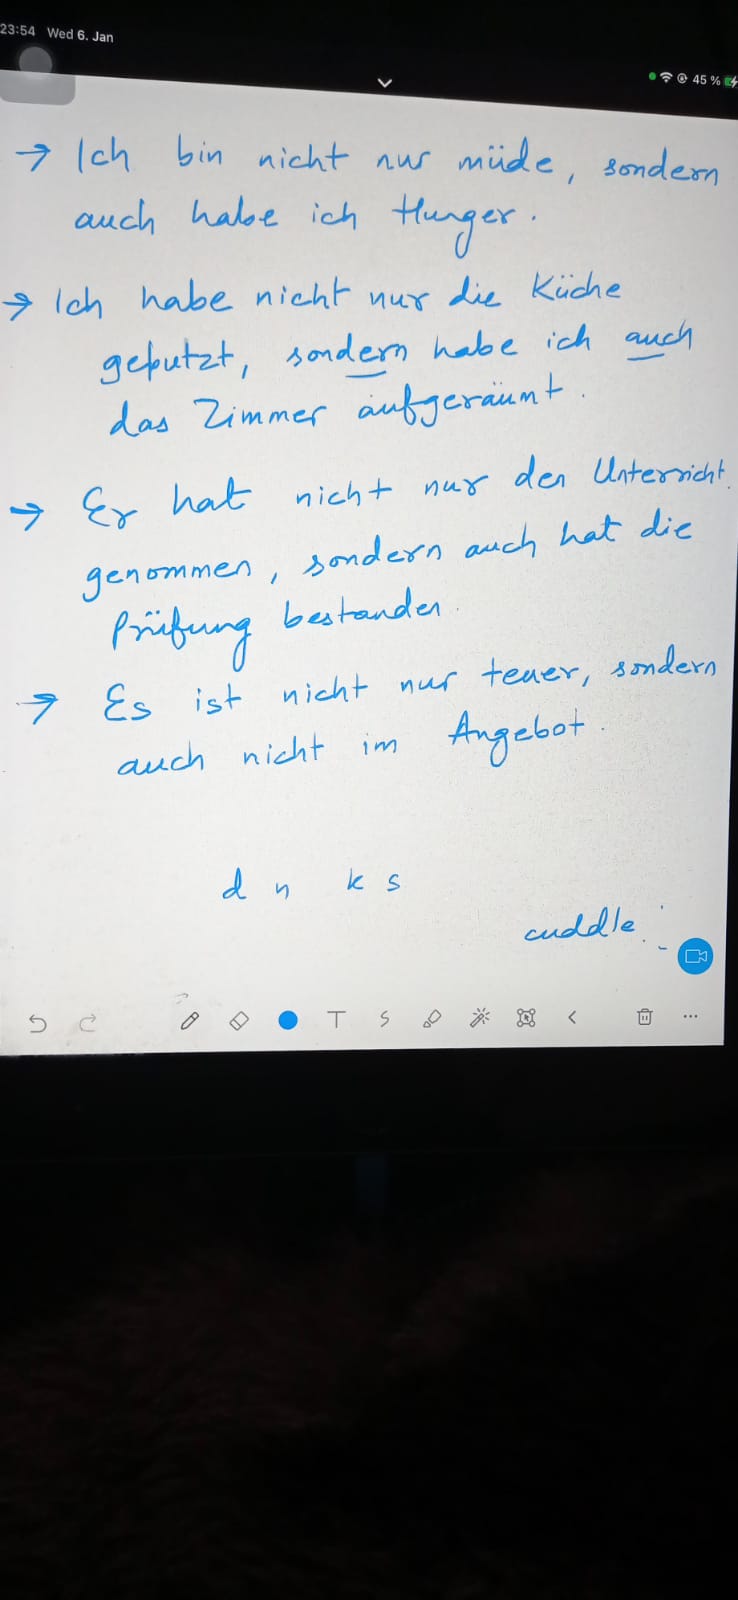 23:54 Wed 6. Jan
45 %
→ Ich bin nicht nur müde, sondern
auch habe ich Hunger.
→ Ich habe nicht nur die Küche
geputzt, sondern habe ich auch
das Zimmer aufgeräumt.
→ Er hat nicht nur den Unterricht
genommen, sondern auch hat die
Prüfung bestanden.
→ Es ist nicht nur teuer, sondern
auch nicht im Angebot.
d n k s
cuddle
T